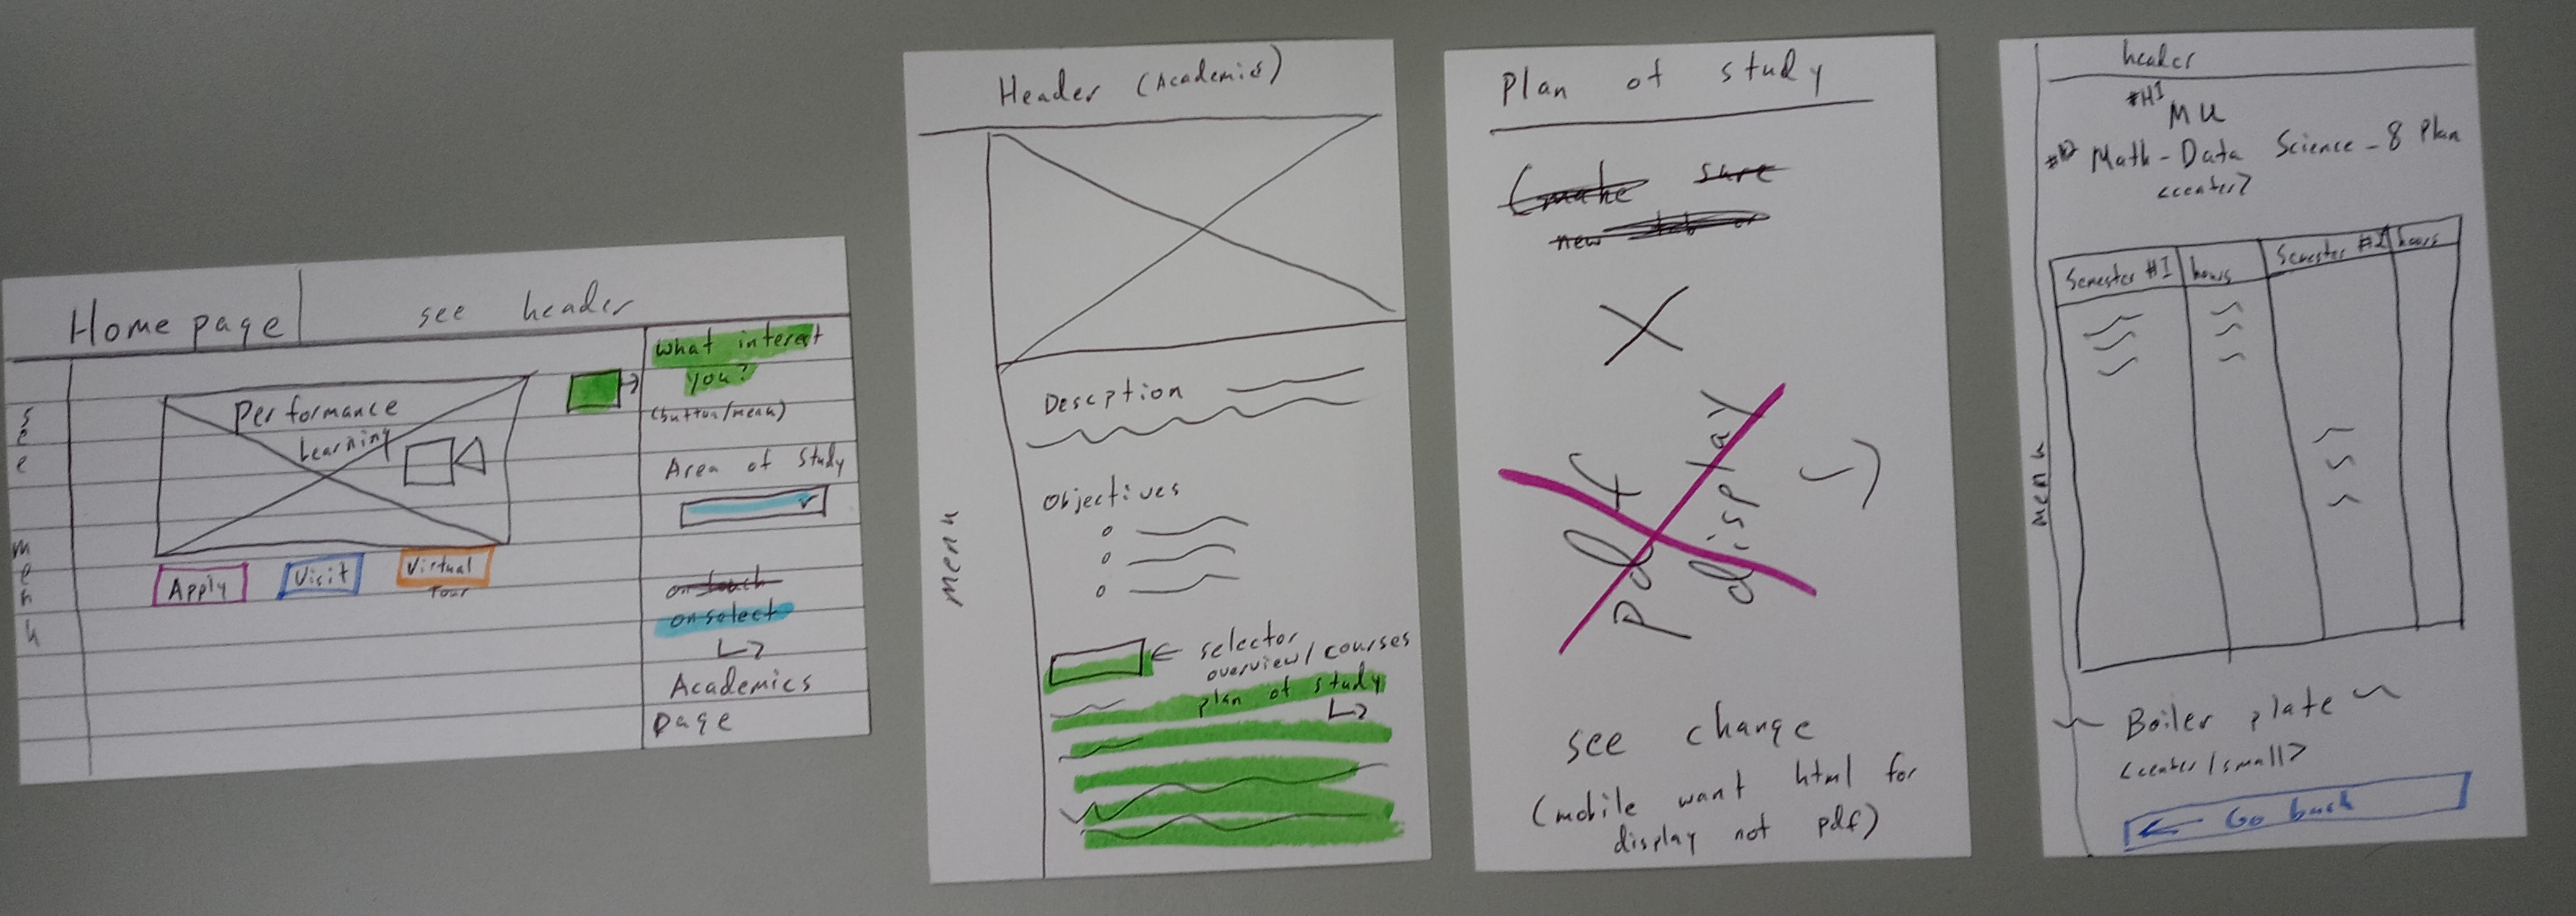 Home page
see header
see menu
Performance
Learning
Apply
Visit
Virtual
Tour
what interest
you?
(button/menu)
Area of Study
on touch
on select
Academics
page
Header (Academic)
menu
Desception
Objectives
selector
overview/courses
plan of study
Plan of study
(make sure
new tab or
pdf
display
see change
(mobile want html for
display not pdf)
header
#H1
MU
Math-Data Science-8 Plan
<center>
menu
Semester #1
hours
Semester #2
hours
Boiler plate
<center/small>
Go back